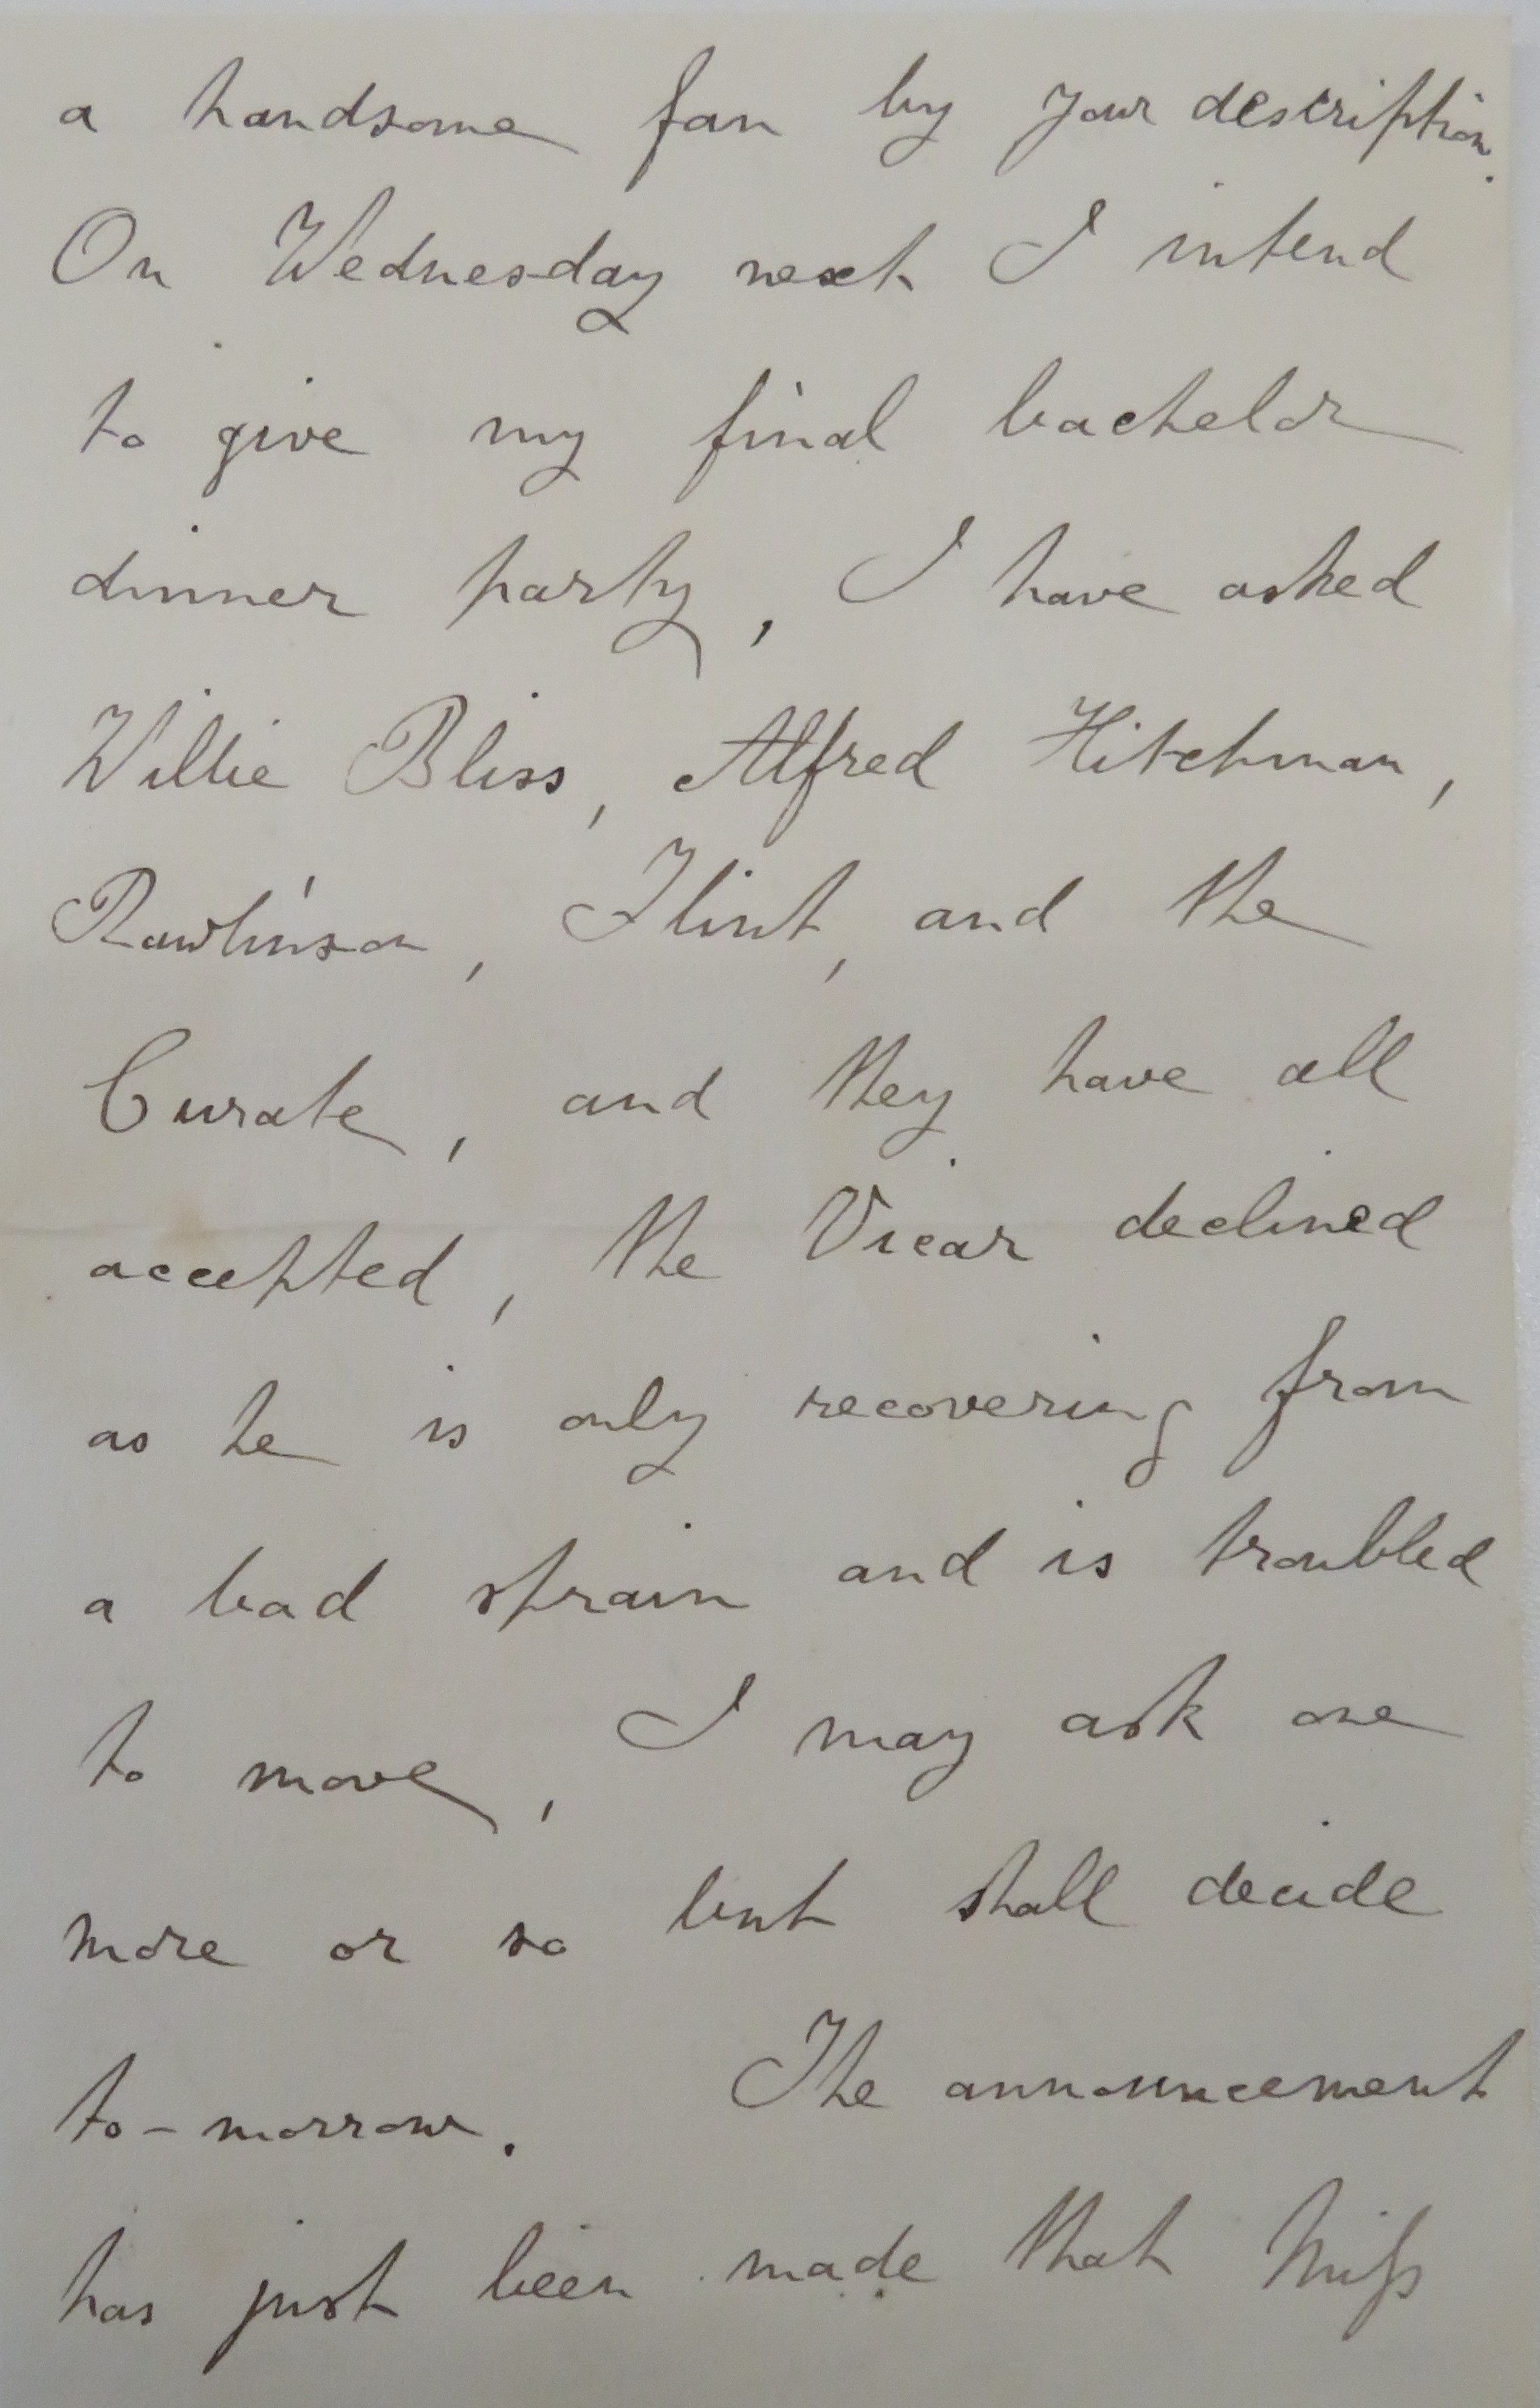 a handsome fan by your description.
On Wednesday next I intend
to give my final bachelor
dinner party, I have asked
Willie Bliss, Alfred Hitchman,
Rawlinson, Flint, and the
Curate, and they have all
accepted, the Vicar declined
as he is only recovering from
a bad strain and is troubled
to move, I may ask one
more or so but shall decide
to-morrow. The announcement
has just been made that Miss